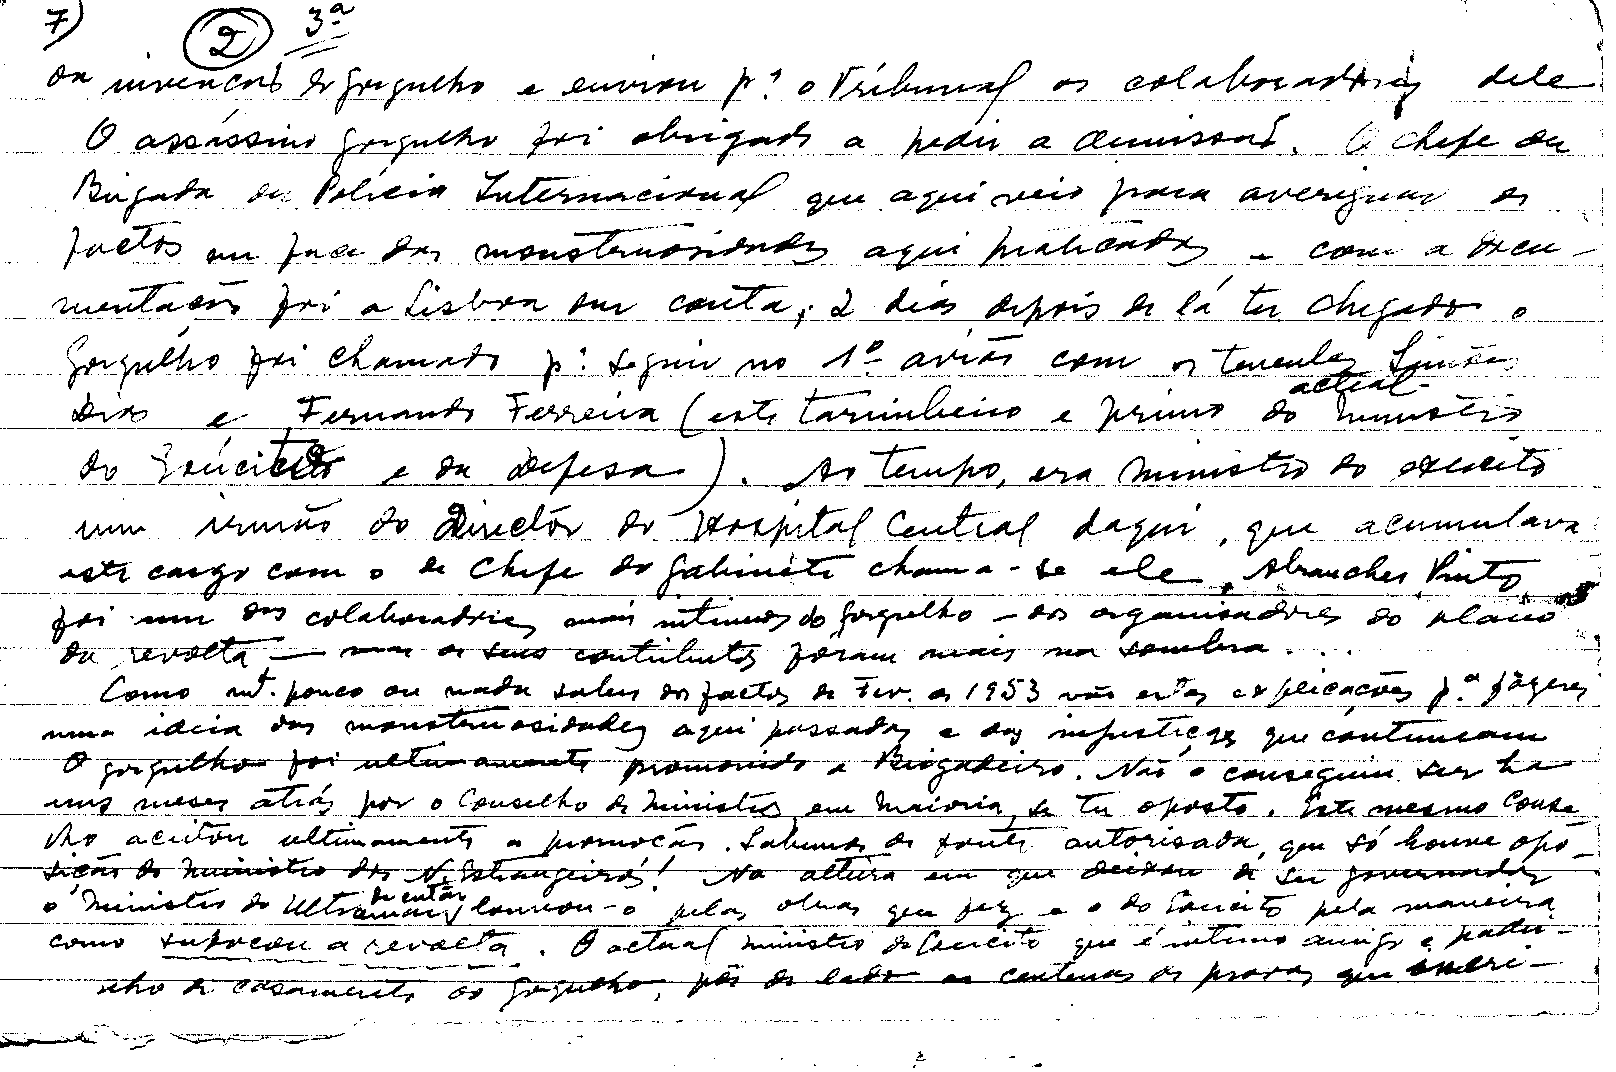 7) 2 3ª
da invenção do Gorgulho e enviou pª o Tribunal os colaboradores dele
O assassino Gorgulho foi obrigado a pedir a demissão. O chefe da
Brigada da Polícia Internacional que aqui veio para averiguar os
factos em face das monstruosidades aqui praticadas e com a docu-
mentação foi a Lisboa dar conta, 2 dias depois de lá ter chegado o
Gorgulho foi chamado pª seguir no 1º avião com os tenentes Simões
Dias e Fernando Ferreira (este tarimbeiro e primo do actual ministro
do Exército e da Defesa). Ao tempo, era ministro do exército
um irmão do Director do Hospital Central daqui, que acumulava
este cargo com o de Chefe do Gabinete chama-se ele, Abranches Pinto,
foi um dos colaboradores mais íntimos do Gorgulho - dos organisadores do plano
da revolta — mas os seus contributos foram mais na sombra....
Como mt. pouco ou nada sabem dos factos de Fev. de 1953 vão estas explicações pª fazeres
uma ideia das monstruosidades aqui passadas e das injustiças que continuam
O Gorgulho foi ultimamente promovido a Brigadeiro. Não o conseguiu ser ha
uns meses atrás por o Conselho de Ministros, em maioria, se ter oposto. Este mesmo Conse
lho aceitou ultimamente a promoção. Sabemos de fonte autorisada, que só houve opo-
sição do Ministro dos N. Estrangeiros! Na altura em que deixou de ser governador
o Ministro do Ultramar de então louvou-o pelas obras que fez e o do Exército pela maneira
como sufocou a revolta. O actual ministro do Exército que é íntimo amigo e padri-
nho de casamento do Gorgulho, pôs de lado as centenas de provas que